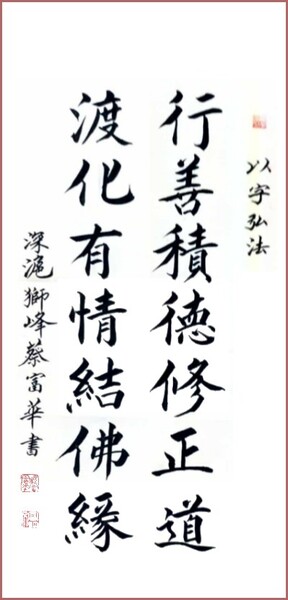 以字弘法
行善積德修正道
渡化有情結佛緣
深滬獅峰蔡富華書